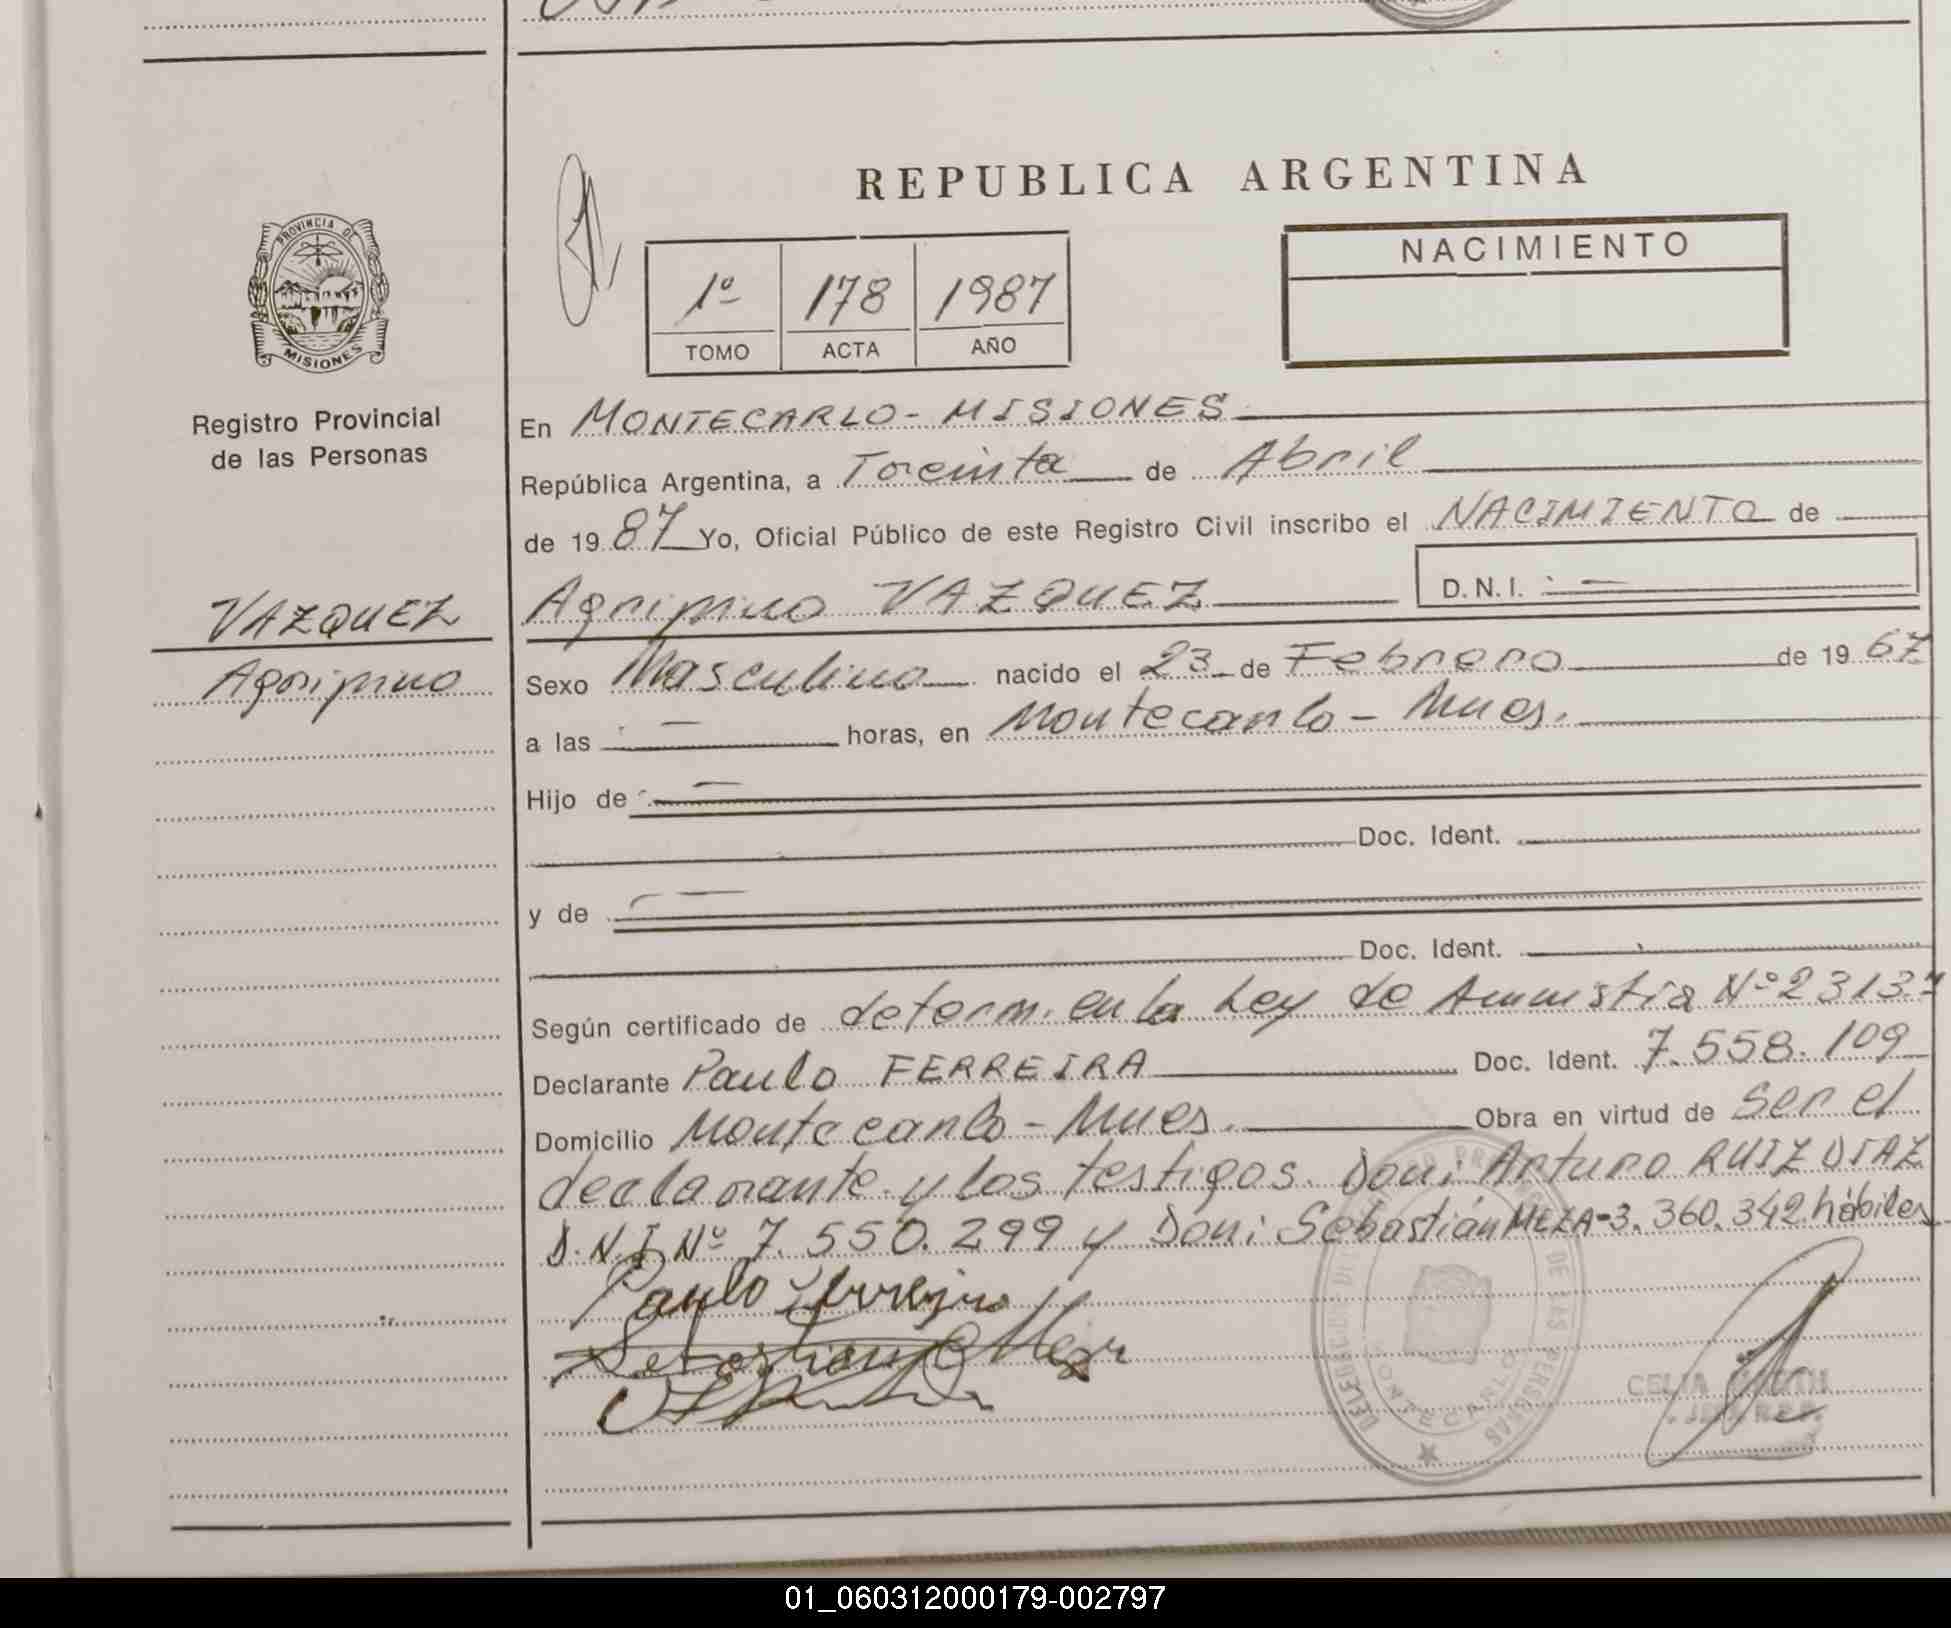 REPUBLICA ARGENTINA
PROVINCIA DE
MISIONES
Registro Provincial
de las Personas
1º 178 1987
TOMO ACTA AÑO
NACIMIENTO
En MONTECARLO - MISIONES
República Argentina, a Treinta de Abril
de 19 87 Yo, Oficial Público de este Registro Civil inscribo el NACIMIENTO de
VAZQUEZ
Agripino
Agripino VAZQUEZ D.N.I.
Sexo Masculino nacido el 23 de Febrero de 19 67
a las horas, en Montecarlo - Mnes.
Hijo de
Doc. Ident.
y de
Doc. Ident.
Según certificado de determ. en la Ley de Amnistia Nº 2313
Declarante Paulo FERREIRA Doc. Ident. 7.558.109
Domicilio Montecarlo - Mnes. Obra en virtud de ser el
declarante y los testigos. Don: Arturo RUIZ DIAZ
D.N.I. Nº 7.550.299 y Don: Sebastián MEZA - 3.360.342 hábiles
Paulo Ferreira
Sebastian Meza
DE LAS PERSONAS
MONTECARLO
CELIA
JEFA R.P.P.
01_060312000179-002797